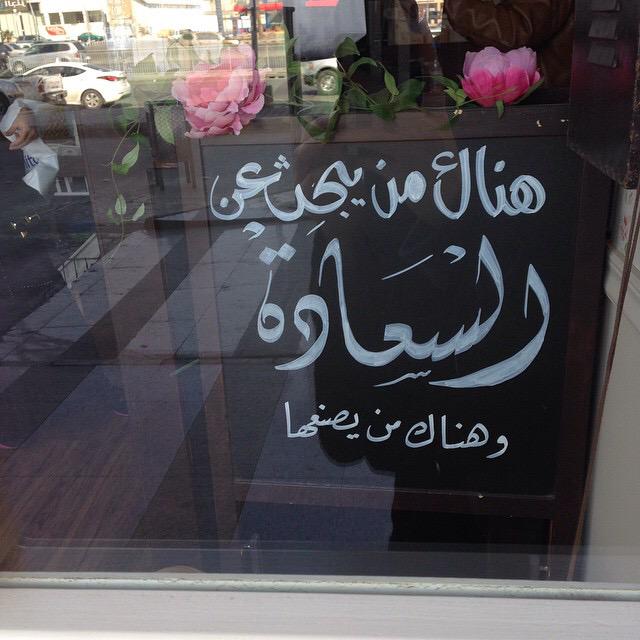 هناك من يبحث عن
السعادة
وهناك من يصنعها